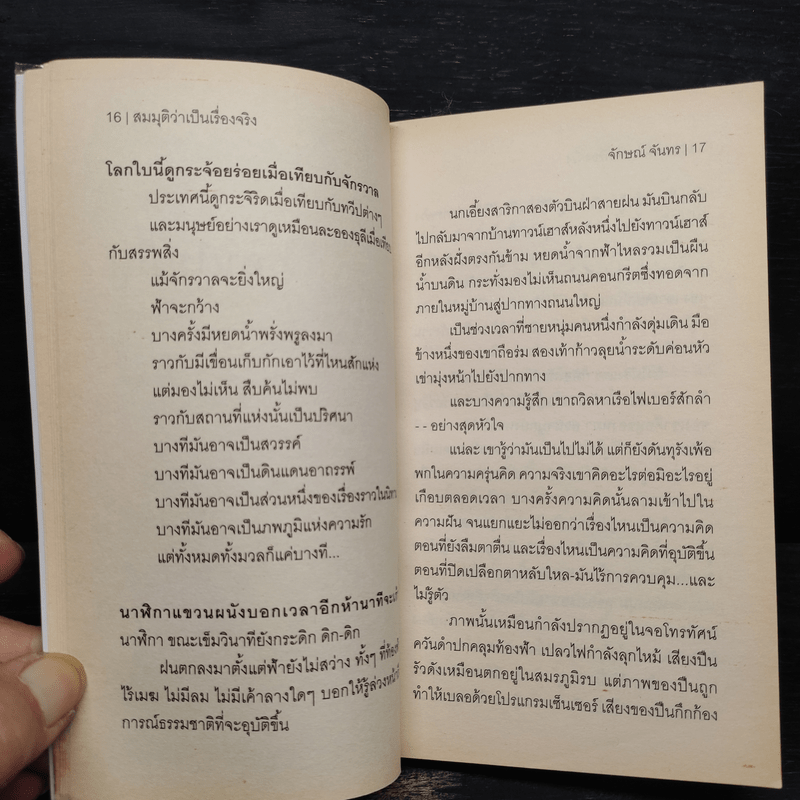 16 | สมมุติว่าเป็นเรื่องจริง
โลกใบนี้ดูกระจ้อยร่อยเมื่อเทียบกับจักรวาล
ประเทศนี้ดูกระจิริดเมื่อเทียบกับทวีปต่างๆ
และมนุษย์อย่างเราดูเหมือนละอองธุลีเมื่อเทียบ
กับสรรพสิ่ง
แม้จักรวาลจะยิ่งใหญ่
ฟ้าจะกว้าง
บางครั้งมีหยดน้ำพรั่งพรูลงมา
ราวกับมีเขื่อนเก็บกักเอาไว้ที่ไหนสักแห่ง
แต่มองไม่เห็น สืบค้นไม่พบ
ราวกับสถานที่แห่งนั้นเป็นปริศนา
บางทีมันอาจเป็นสวรรค์
บางทีมันอาจเป็นดินแดนอาถรรพ์
บางทีมันอาจเป็นส่วนหนึ่งของเรื่องราวใน
บางทีมันอาจเป็นภพภูมิแห่งความรัก
แต่ทั้งหมดทั้งมวลก็แค่บางที...
นาฬิกาแขวนผนังบอกเวลาอีกห้านาทีจะ
นาฬิกา ขณะเข็มวินาทียังกระดิก ดิก-ดิก
ฝนตกลงมาตั้งแต่ฟ้ายังไม่สว่าง ทั้งๆ ที่
ไร้เมฆ ไม่มีลม ไม่มีเค้าลางใดๆ บอกให้รู้ล่วง
การณ์ธรรมชาติที่จะอุบัติขึ้น
จักษณ์ จันทร | 17
นกเอี้ยงสาริกาสองตัวบินฝ่าสายฝน มันบินกลับ
ไปกลับมาจากบ้านทาวน์เฮาส์หลังหนึ่งไปยังทาวน์เฮาส์
อีกหลังฝั่งตรงกันข้าม หยดน้ำจากฟ้าไหลรวมเป็นผืน
น้ำบนดิน กระทั่งมองไม่เห็นถนนคอนกรีตซึ่งทอดจาก
ภายในหมู่บ้านสู่ปากทางถนนใหญ่
เป็นช่วงเวลาที่ชายหนุ่มคนหนึ่งกำลังดุ่มเดิน มือ
ข้างหนึ่งของเขาถือร่ม สองเท้าก้าวลุยน้ำระดับค่อนหัว
เข่ามุ่งหน้าไปยังปากทาง
และบางความรู้สึก เขาถวิลหาเรือไฟเบอร์สักลำ
- - อย่างสุดหัวใจ
แน่ละ เขารู้ว่ามันเป็นไปไม่ได้ แต่ก็ยังดันทุรังเพ้อ
พกในความครุ่นคิด ความจริงเขาคิดอะไรต่อมิอะไรอยู่
เกือบตลอดเวลา บางครั้งความคิดนั้นลามเข้าไปใน
ความฝัน จนแยกแยะไม่ออกว่าเรื่องไหนเป็นความคิด
ตอนที่ยังลืมตาตื่น และเรื่องไหนเป็นความคิดที่อุบัติขึ้น
ตอนที่ปิดเปลือกตาหลับใหล-มันไร้การควบคุม...และ
ไม่รู้ตัว
ภาพนั้นเหมือนกำลังปรากฏอยู่ในจอโทรทัศน์
ควันดำปกคลุมท้องฟ้า เปลวไฟกำลังลุกไหม้ เสียงปืน
รัวดังเหมือนตกอยู่ในสมรภูมิรบ แต่ภาพของปืนถูก
ทำให้เบลอด้วยโปรแกรมเซ็นเซอร์ เสียงของปืนกึกก้อง